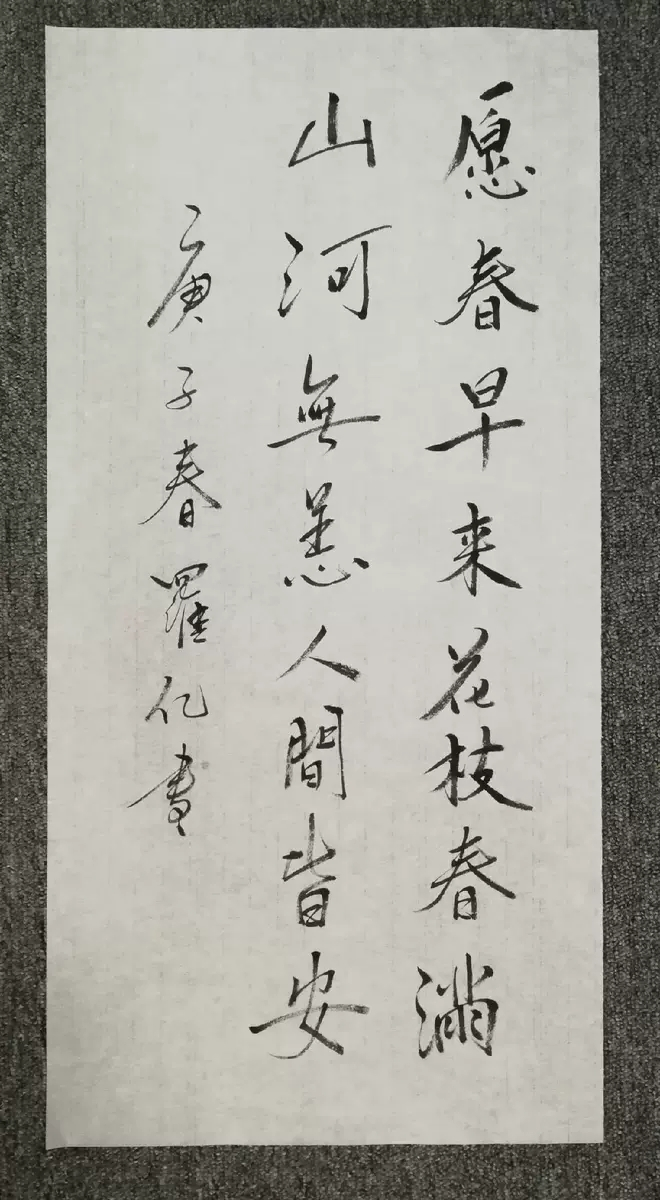 愿春早来花枝春满
山河無恙人間皆安
庚子春羅仁書